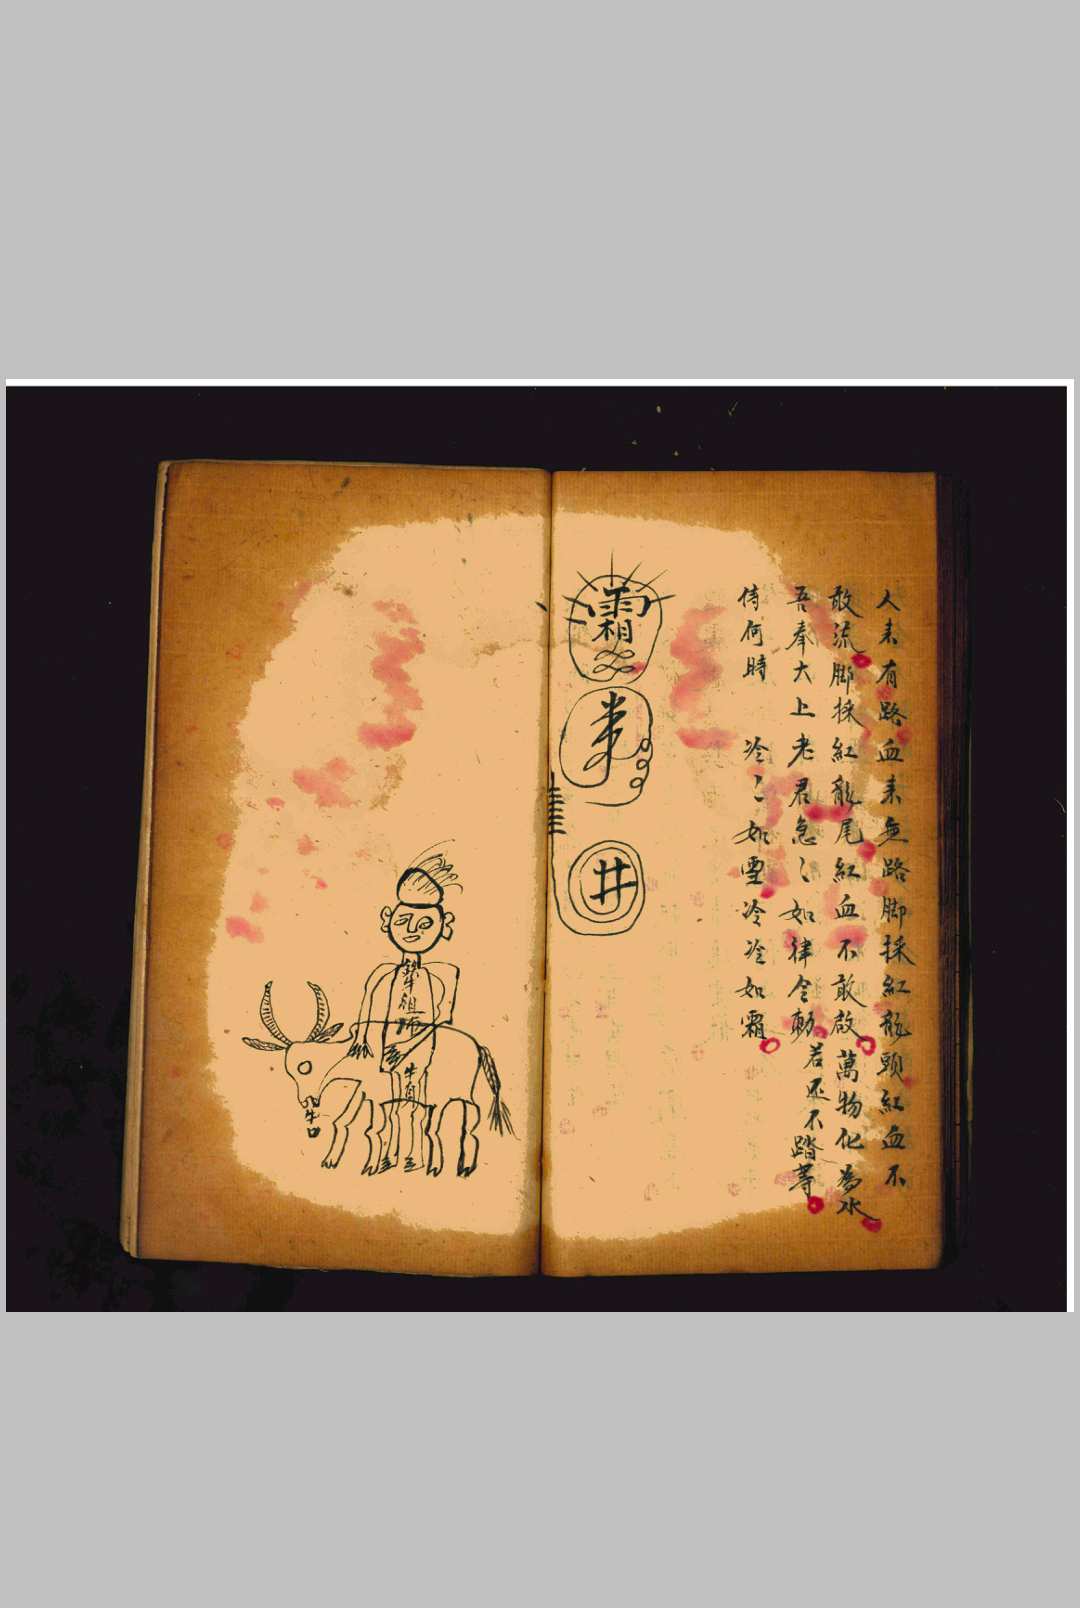 人来有路血来無路脚採紅龍頭紅血不
敢流脚採紅龍尾紅血不敢啟萬物化為水
吾奉大上老君急〻如律令勅若丕不踏等
待何時 冷〻如雪冷冷如霜
霜
井
祖師
牛肩
牛口